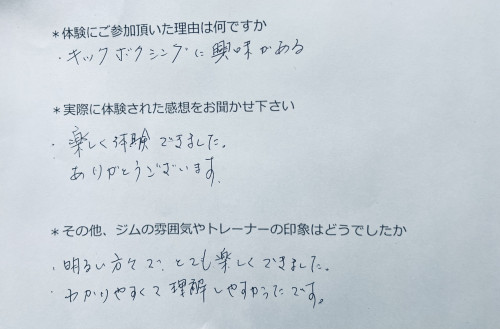 ＊体験にご参加頂いた理由は何ですか
・キックボクシングに興味がある
＊実際に体験された感想をお聞かせ下さい
・楽しく体験できました。
ありがとうございます。
＊その他、ジムの雰囲気やトレーナーの印象はどうでしたか
・明るい方々で、とても楽しくできました。
・わかりやすくて理解しやすかったです。